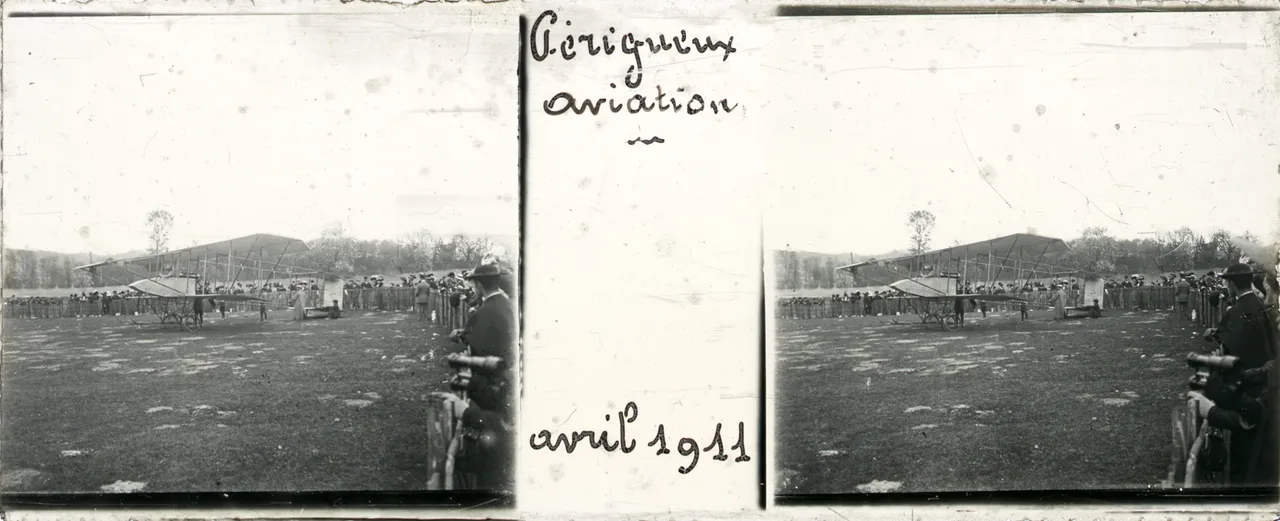 Périgueux
aviation
avril 1911